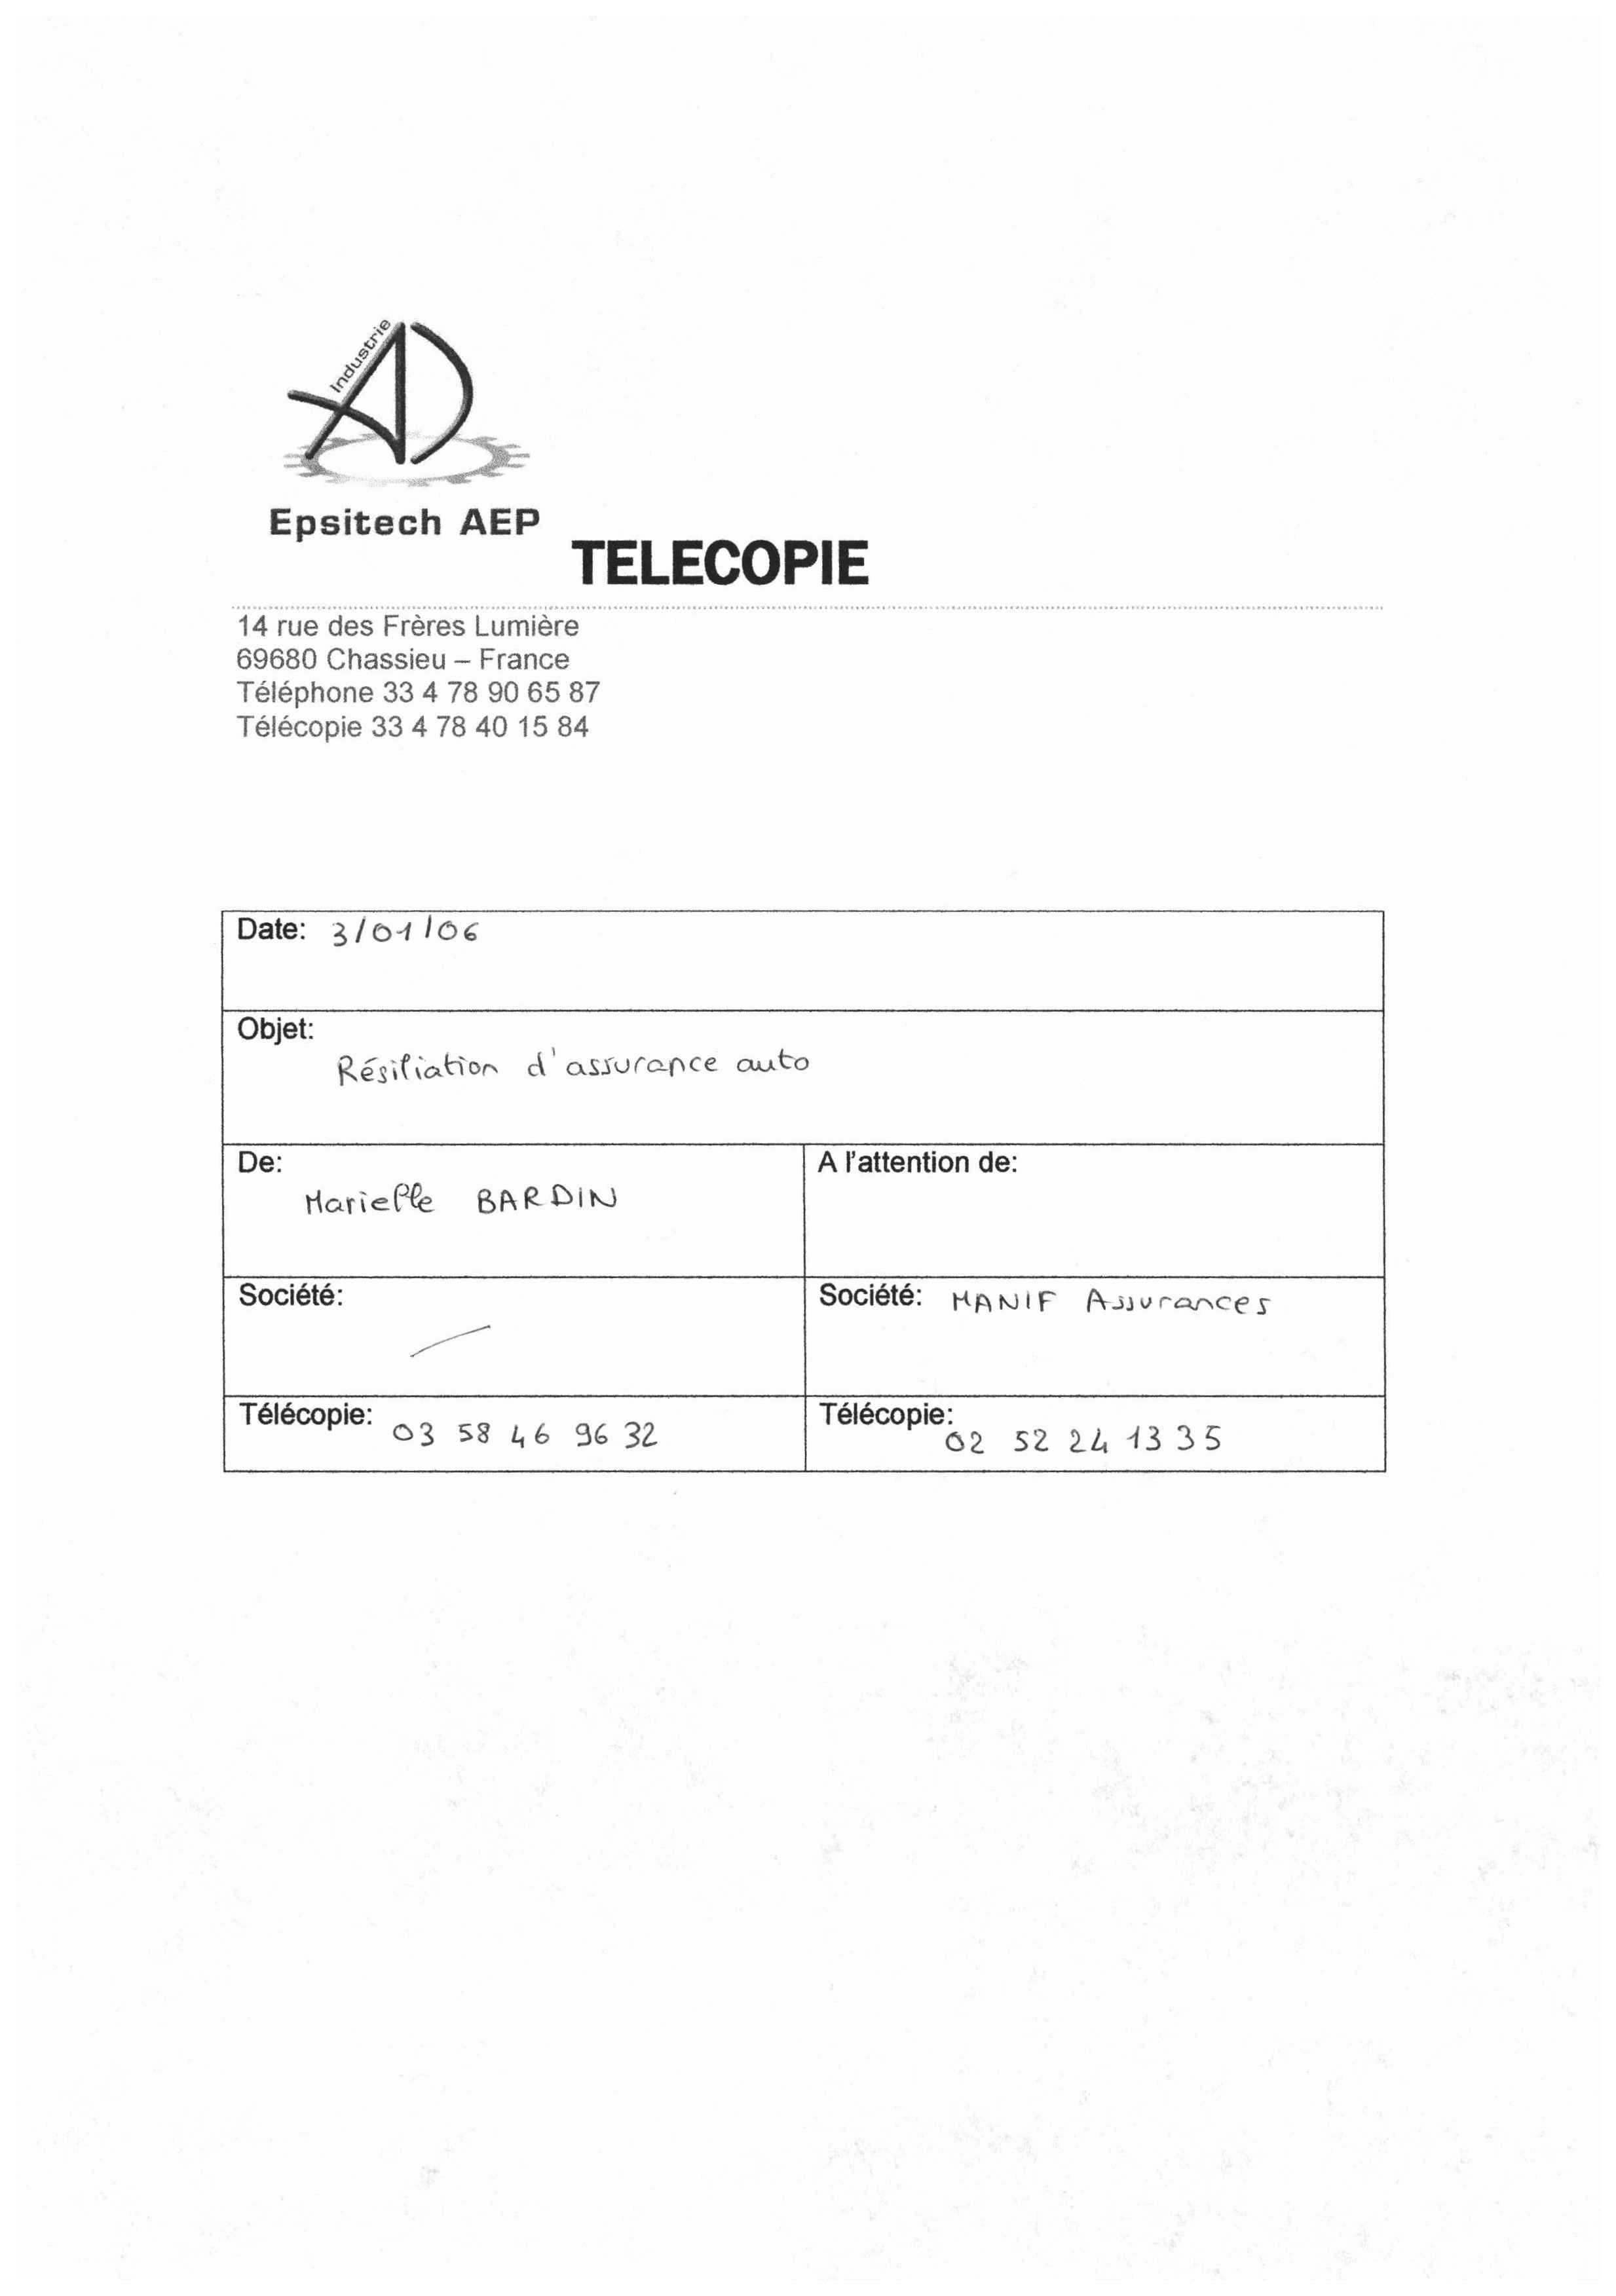 Industrie
Epsitech AEP
TELECOPIE
14 rue des Frères Lumière
69680 Chassieu – France
Téléphone 33 4 78 90 65 87
Télécopie 33 4 78 40 15 84
Date: 3/01/06
Objet:
Résiliation d'assurance auto
De:
Marielle BARDIN
A l'attention de:
Société:
Société: MANIF Assurances
Télécopie: 03 58 46 96 32
Télécopie: 02 52 24 13 35